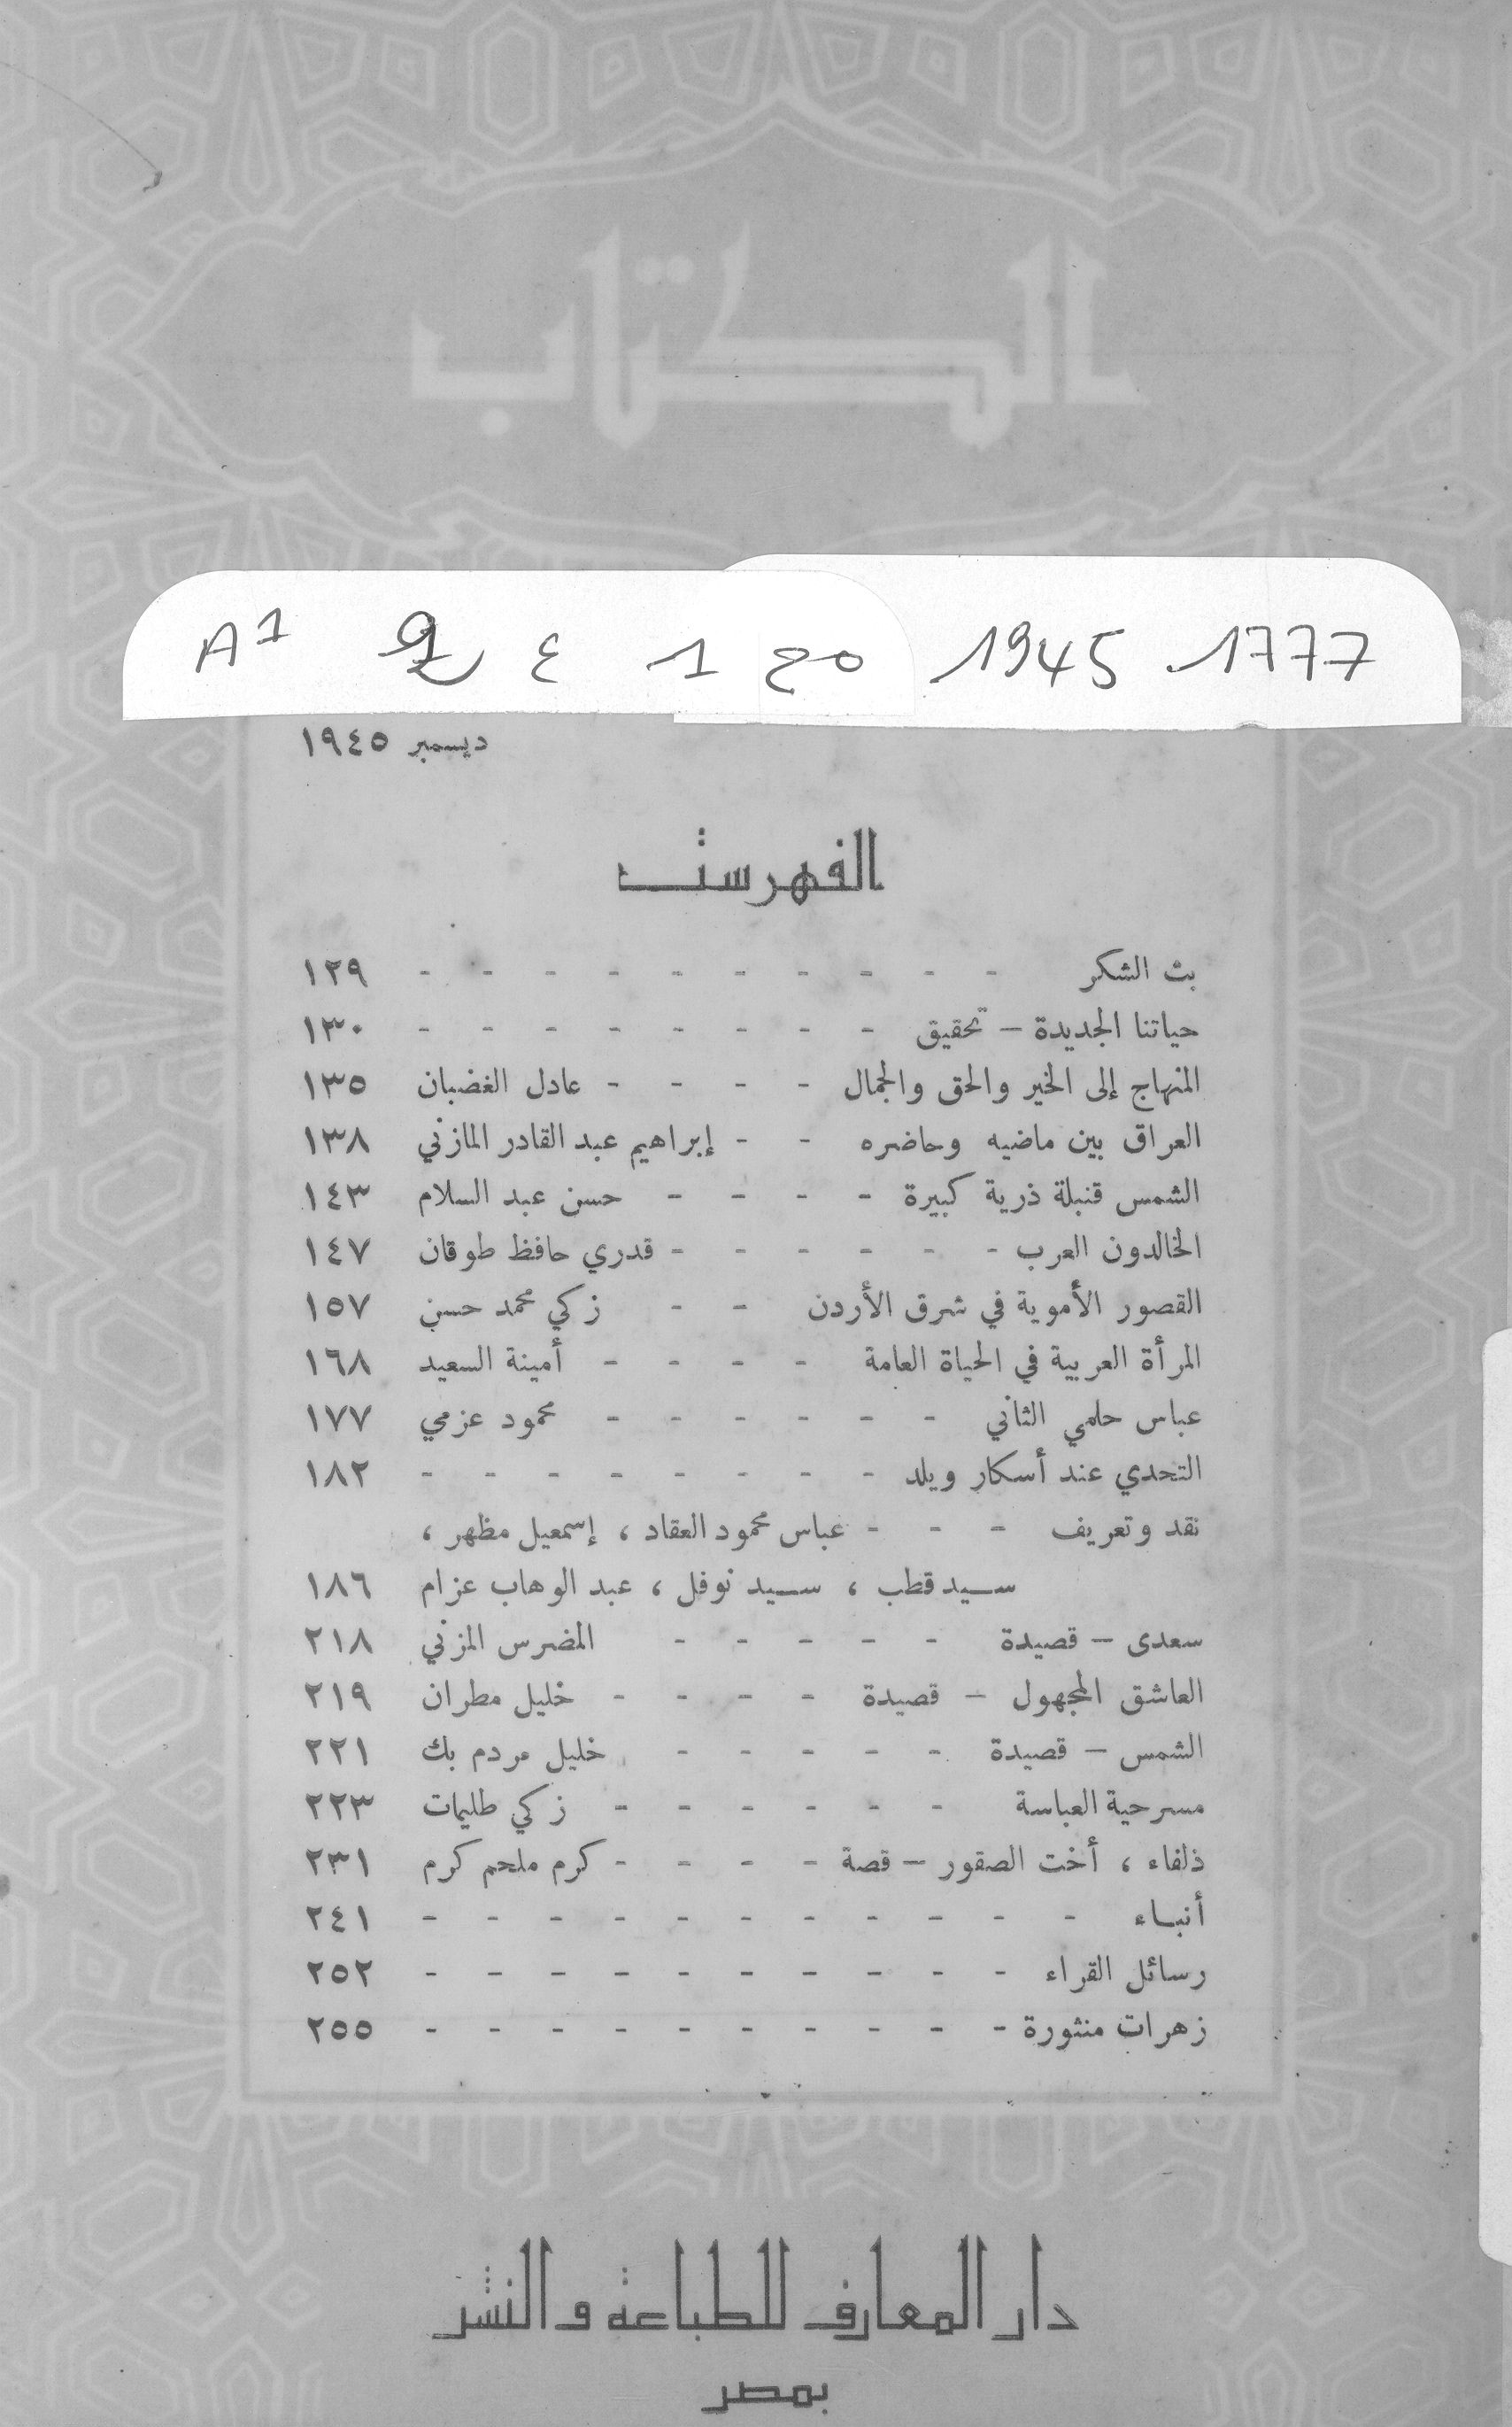 الكتاب
A1 ع 1 مح 1945 1777
ديسمبر ١٩٤٥
الفهرست
بث الشكر - - - - - - - - - - ١٢٩
حياتنا الجديدة – تحقيق - - - - - - - - ١٣٠
المنهاج إلى الخير والحق والجمال - - - - عادل الغضبان ١٣٥
العراق بين ماضيه وحاضره - - إبراهيم عبد القادر المازني ١٣٨
الشمس قنبلة ذرية كبيرة - - - - حسن عبد السلام ١٤٣
الخالدون العرب - - - - - - قدري حافظ طوقان ١٤٧
القصور الأموية في شرق الأردن - - زكي محمد حسن ١٥٧
المرأة العربية في الحياة العامة - - - - أمينة السعيد ١٦٨
عباس حلمي الثاني - - - - - - محمود عزمي ١٧٧
التحدي عند أسكار ويلد - - - - - - - - ١٨٢
نقد وتعريف - - - عباس محمود العقاد ، إسمعيل مظهر ،
سيد قطب ، سيد نوفل ، عبد الوهاب عزام ١٨٦
سعدى – قصيدة - - - - - المضرس المزني ٢١٨
العاشق المجهول – قصيدة - - - - خليل مطران ٢١٩
الشمس – قصيدة - - - - - خليل مردم بك ٢٢١
مسرحية العباسة - - - - - - زكي طليمات ٢٢٣
ذلفاء ، أخت الصقور – قصة - - - - كرم ملحم كرم ٢٣١
أنباء - - - - - - - - - - - ٢٤١
رسائل القراء - - - - - - - - - - ٢٥٢
زهرات منثورة - - - - - - - - - - ٢٥٥
دار المعارف للطباعة والنشر
بمصر